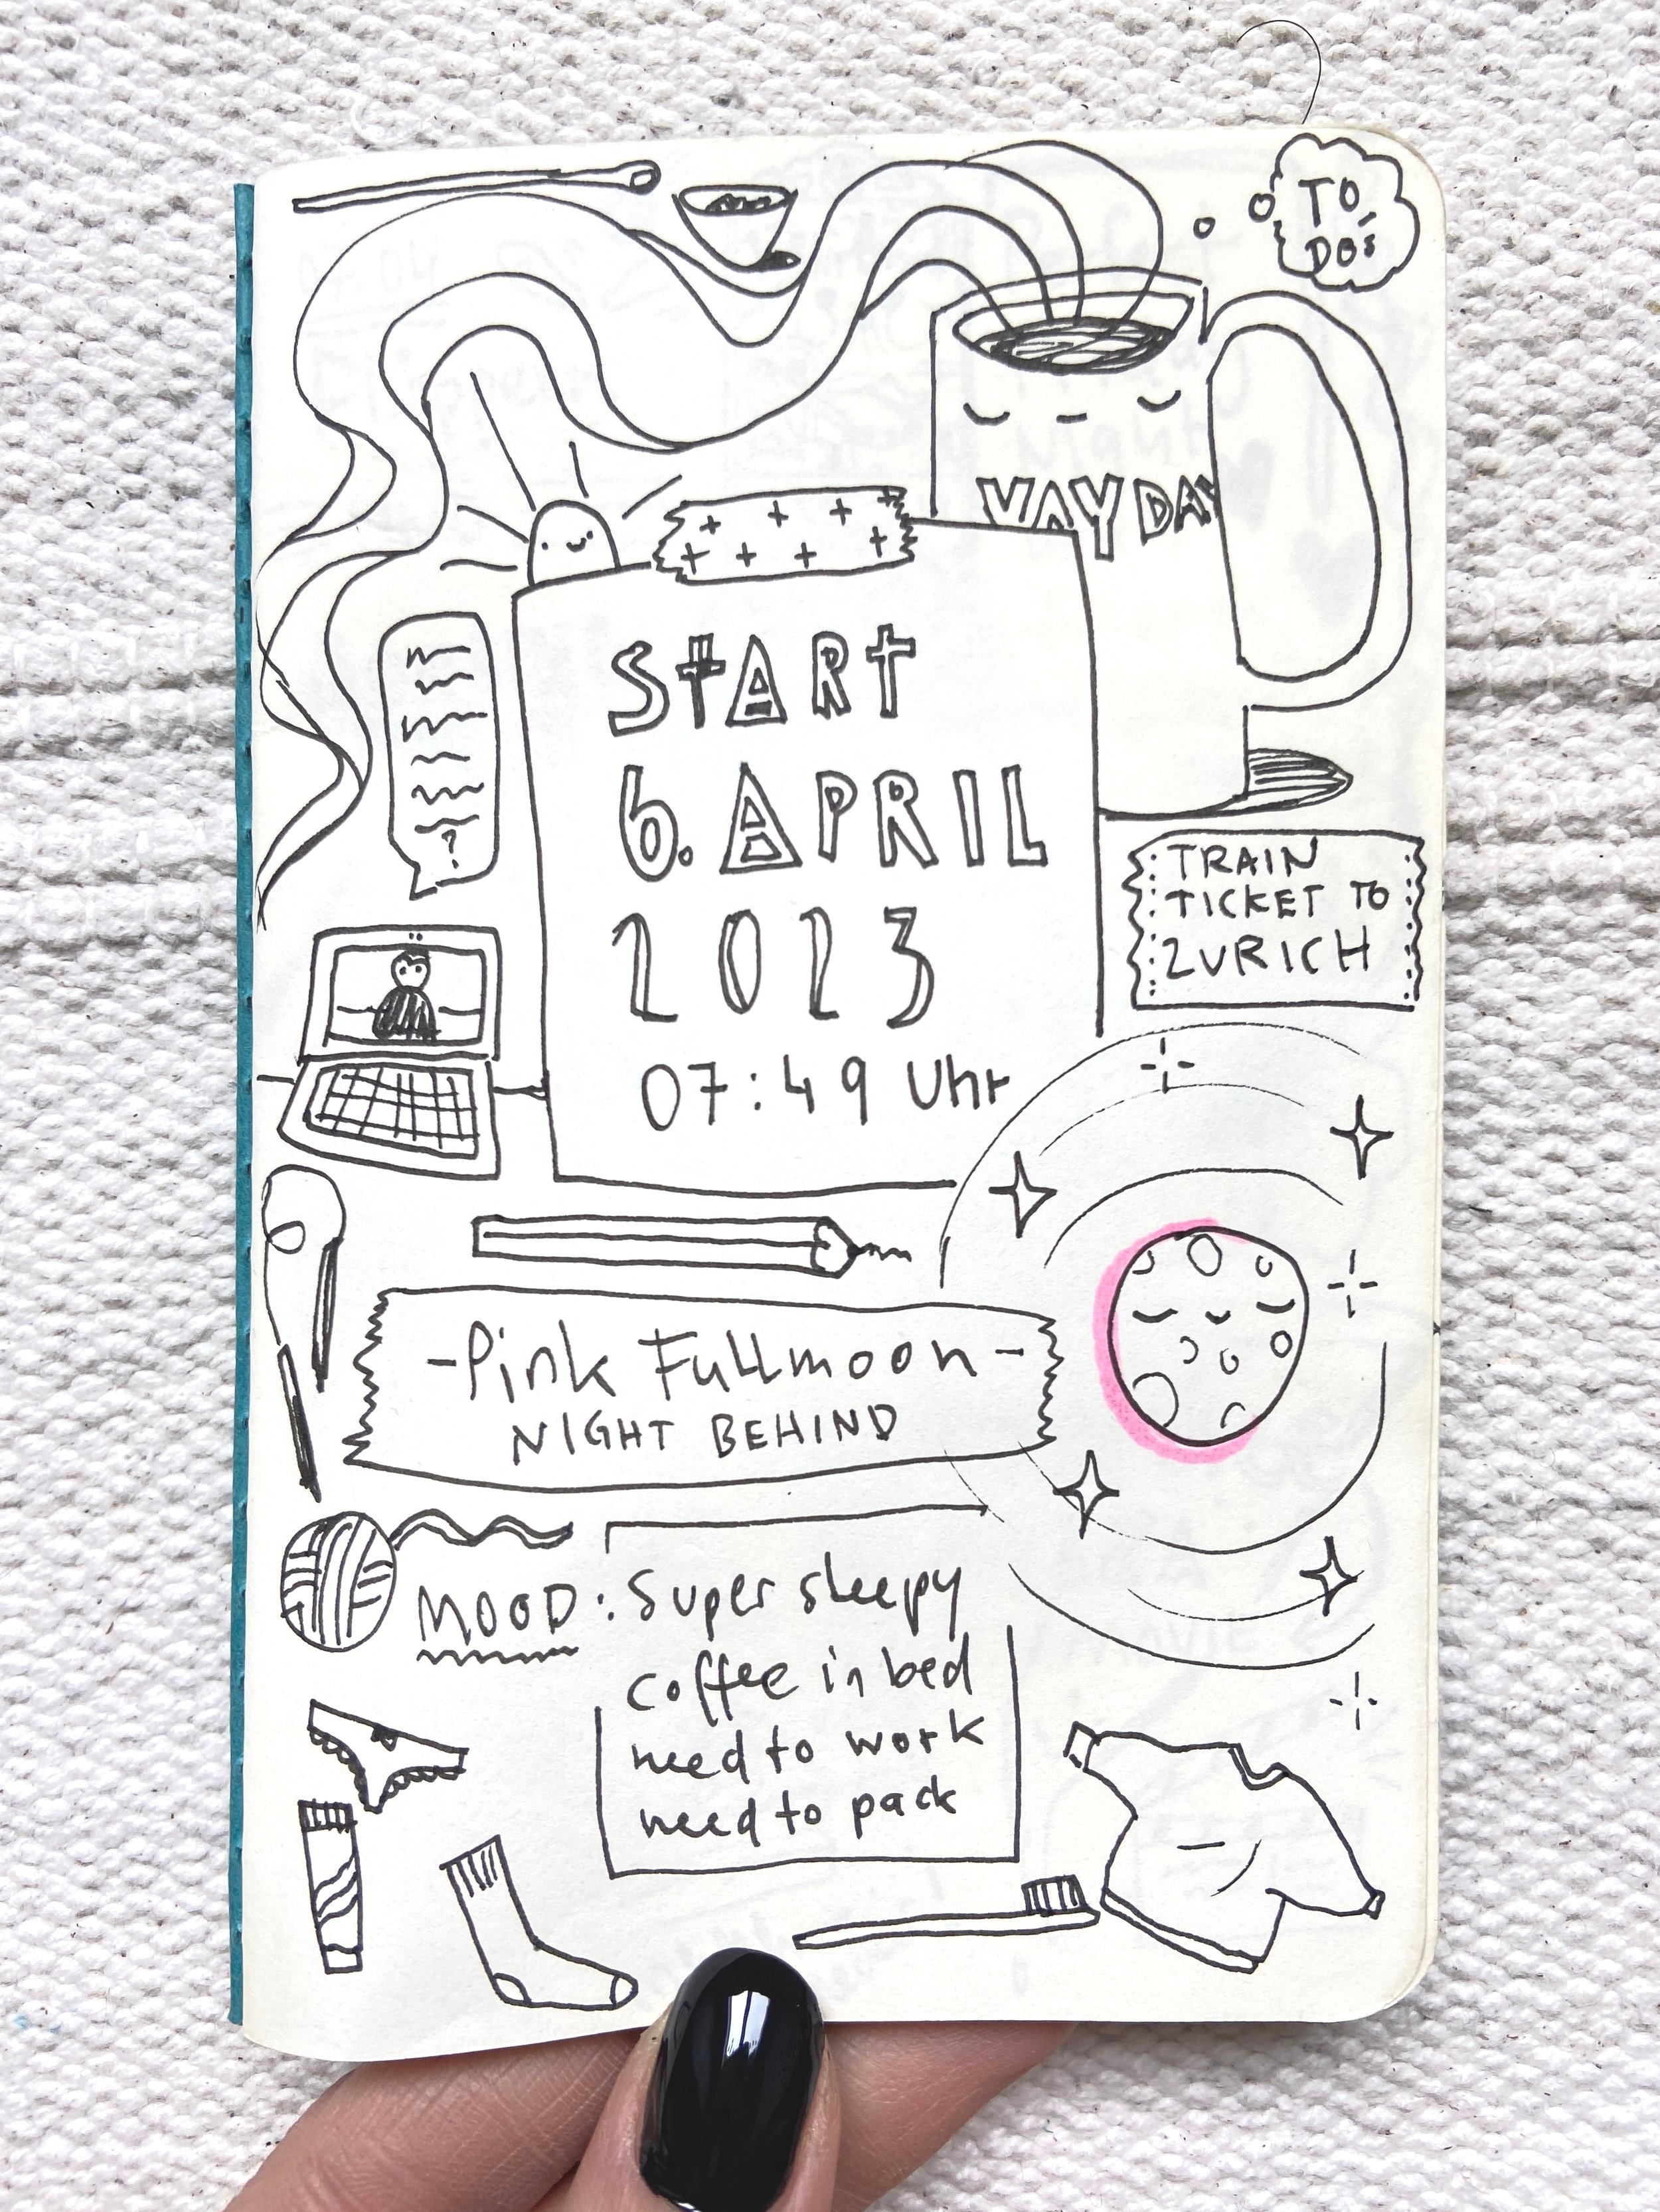 TO
DOs
YAY DAY
START
6. APRIL
2023
07:49 Uhr
?
TRAIN
TICKET TO
ZURICH
-Pink Fullmoon-
NIGHT BEHIND
MOOD: Super sleepy
coffee in bed
need to work
need to pack